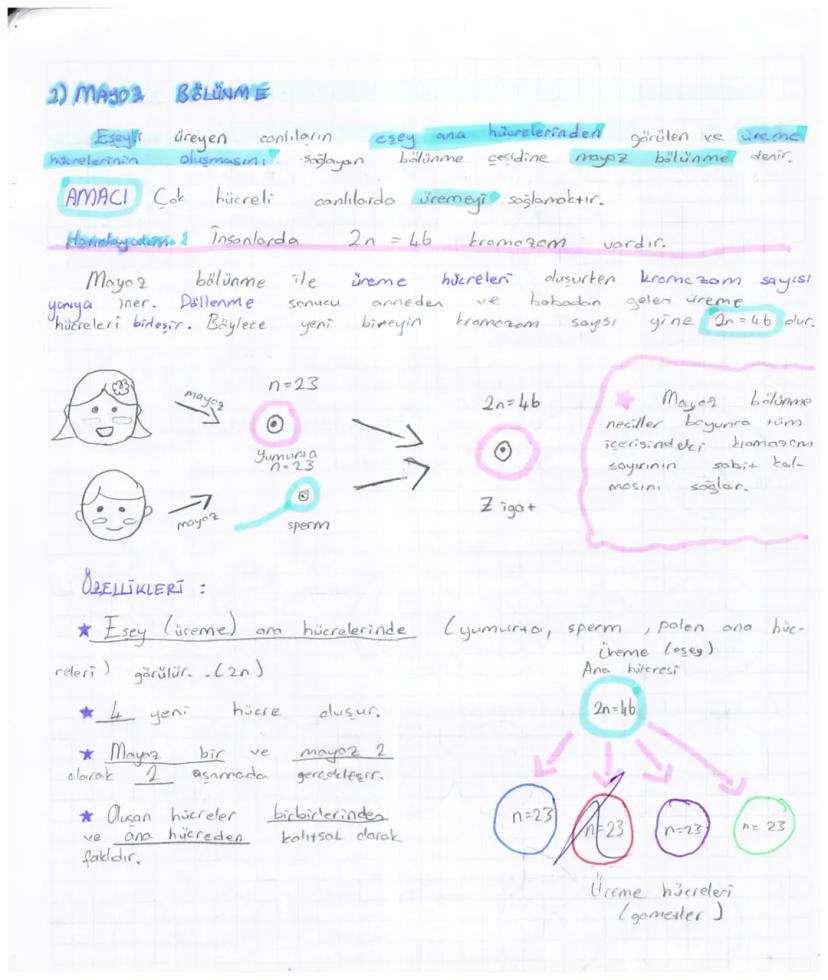 2) MAYOZ BÖLÜNME
Eşeyli üreyen canlıların eşey ana hücrelerinden görülen ve üreme
hücrelerinin oluşmasını sağlayan bölünme çeşidine mayoz bölünme denir.
AMACI Çok hücreli canlılarda üremeyi sağlamaktır.
İnsanlarda 2n = 46 kromozom vardır.
Mayoz bölünme ile üreme hücreleri oluşurken kromozom sayısı
yarıya iner. Döllenme sonucu anneden ve babadan gelen üreme
hücreleri birleşir. Böylece yeni bireyin kromozom sayısı yine 2n=46 olur.
mayoz
n=23
Yumurta
n=23
mayoz
sperm
2n=46
Zigot
Mayoz bölünme
nesiller boyunca tüm
içerisindeki kromozom
sayının sabit kal-
masını sağlar.
ÖZELLİKLERİ :
★ Eşey (üreme) ana hücrelerinde (yumurta, sperm, polen ana hüc-
releri) görülür. (2n)
★ 4 yeni hücre oluşur.
★ Mayoz bir ve mayoz 2
olarak 2 aşamada gerçekleşir.
★ Oluşan hücreler birbirlerinden
ve ana hücreden kalıtsal olarak
faklıdır.
üreme (eşey)
Ana hücresi
2n=46
n=23
n=23
n=23
n=23
Üreme hücreleri
(gametler)